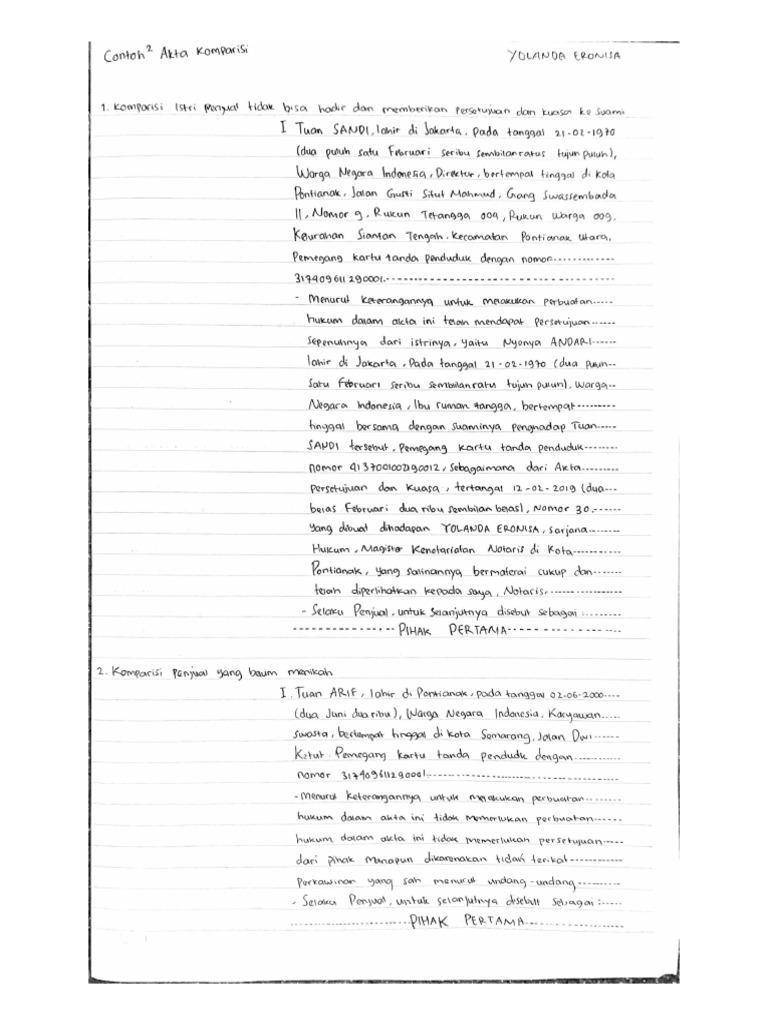 Contoh² Akta Komparisi
YOLANDA ERONISA
1. Komparisi Istri Penjual tidak bisa hadir dan memberikan Persetujuan dan kuasa ke suami
I Tuan SANDI, lahir di Jakarta, Pada tanggal 21-02-1970
(dua puluh satu Februari seribu sembilanratus tujuh puluh),
Warga Negara Indonesia, Direktur, bertempat tinggal di Kota
Pontianak, Jalan Gusti Situt Mahmud, Gang Swassembada
II, Nomor 9, Rukun Tetangga 004, Rukun Warga 009,
Kelurahan Siantan Tengah, Kecamatan Pontianak Utara,
Pemegang kartu tanda penduduk dengan nomor-------------
317409611290001.----------------------------------
- Menurut keterangannya untuk melakukan perbuatan-----
hukum dalam akta ini telah mendapat Persetujuan------
sepenuhnya dari istrinya, yaitu Nyonya ANDARI-----
lahir di Jakarta, Pada tanggal 21-02-1970 (dua puluh--
satu Februari seribu sembilanratu tujuh puluh), Warga--
Negara Indonesia, Ibu rumah tangga, bertempat---------
tinggal bersama dengan suaminya penghadap Tuan----
SANDI tersebut, Pemegang kartu tanda penduduk-------
nomor 4137001002190012, sebagaimana dari Akta------
Persetujuan dan Kuasa, tertanggal 12-02-2019 (dua----
belas Februari dua ribu sembilan belas), Nomor 30.------
yang dibuat dihadapan YOLANDA ERONISA, sarjana----
Hukum, Magister Kenotariatan Notaris di Kota---------
Pontianak, yang salinannya bermaterai cukup dan------
telah diperlihatkan kepada saya, Notaris.-------------
- Selaku Penjual, untuk selanjutnya disebut sebagai :--------
------------------PIHAK PERTAMA------------------
2. Komparisi Penjual yang baum menikah
I. Tuan ARIF, lahir di Pontianak, pada tanggal 02-06-2000----
(dua Juni dua ribu), Warga Negara Indonesia, Karyawan----
swasta, bertempat tinggal di Kota Semarang, Jalan Dwi---
Ketut. Pemegang kartu tanda penduk dengan---------
nomor 317409611290001.---------------------------------
- Menurut keterangannya untuk melakukan perbuatan-----
hukum dalam akta ini tidak memerlukan perbuatan----
hukum dalam akta ini tidak memerlukan persetujuan----
dari pihak manapun dikarenakan tidak terikat---------
Perkawinan yang sah menurut undang-undang---------
- Selaku Penjual, untuk selanjutnya disebut sebagai :-----
---------------------PIHAK PERTAMA------------------